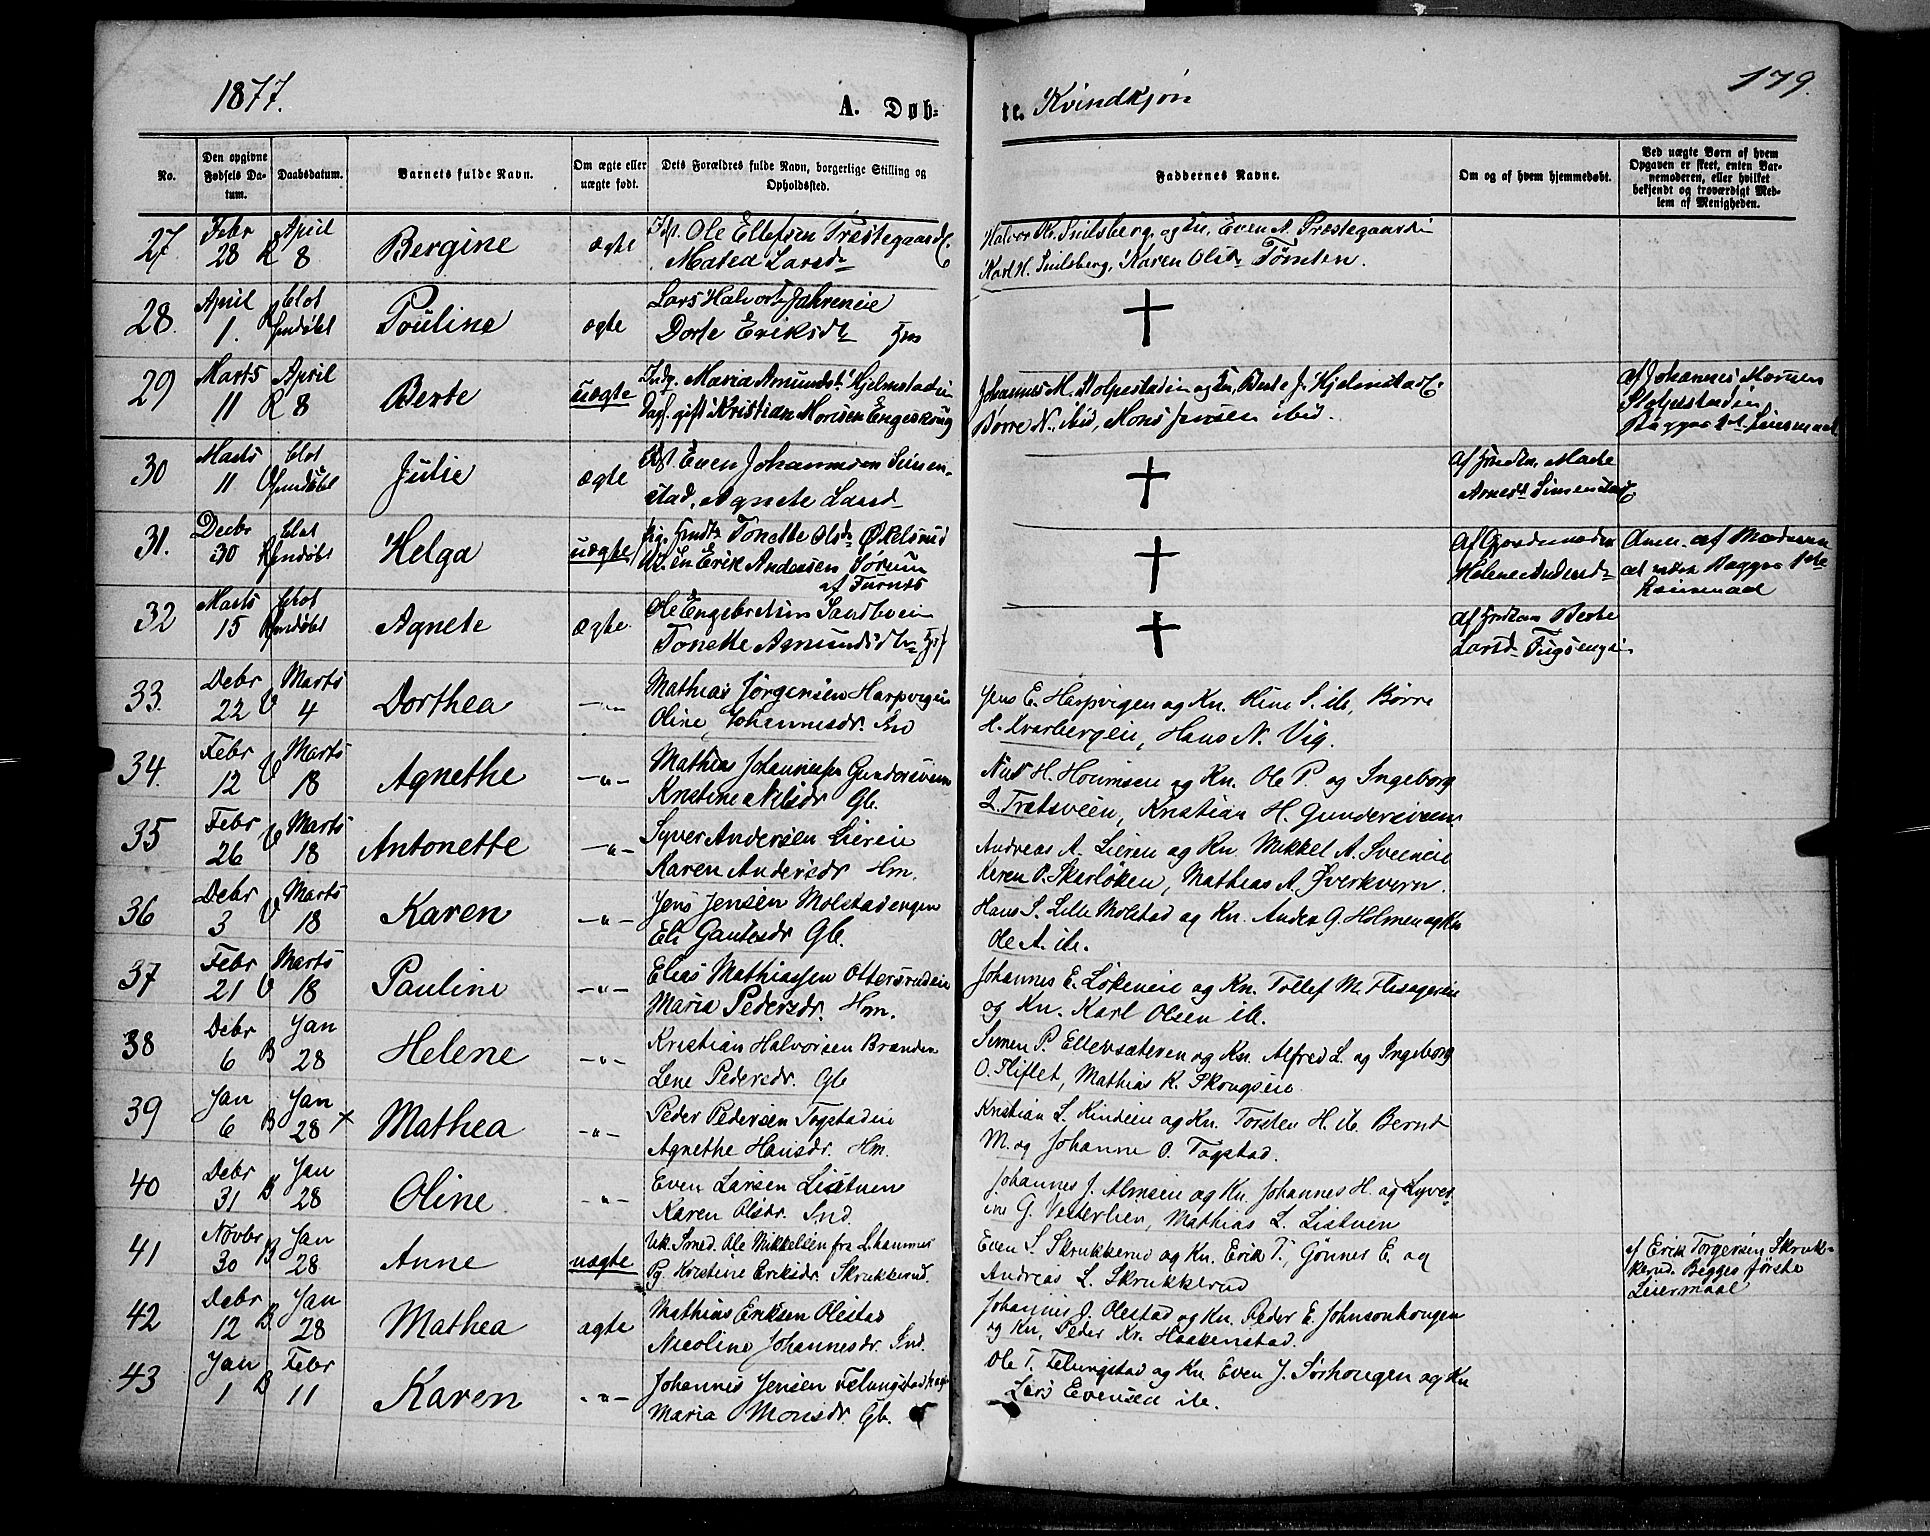 1877.
A. Døb-
te. Kvindkjøn
179.
No.
Den opgivne Fødsels Datum.
Daabsdatum.
Barnets fulde Navn.
Om ægte eller uægte født.
Dets Forældres fulde Navn, borgerlige Stilling og Opholdssted.
Faddernes Navne.
Om og af hvem hjemmedøbt.
Ved uægte Børn af hvem Opgaven er skeet, enten Barnemoderen, eller hvilket bekjendt og troværdigt Medlem af Menigheden.
27. Febr 28 R April 8 Bergine ægte Ole Ellefsen Præstegaards
Matea Larsd
Halvor Smilsberg og Kn, Even A. Præstegaardei
Karl H. Smilsberg, Karen Olsdr Tømten.
28. April 1. R blot hmdøbt Pouline ægte Lars Halvors Jahreneie
Dorte Eriksdr
29 Marts 11 R April 8 Berte uægte Indg. Maria Amundsdr Hjelmstadei
Dagl. gift Kristian Monsen Engeskoug
Johannes M. Stolpestadeie og Kn, Berte J. Hjelmstad
Børre N. ibid, Mons Jensen ibid.
af Johannes
Begges 1ste Leiermaal
30 Marts 11 blot hmdøbt Julie ægte Even Johannesen Simen-
stad, Agnete Larsd
af Marte
Arnesd Simenstad
31. Decbr 30 R blot hmdøbt Helga uægte Pig. Tonette Olsdr Økelsrud
Erik Andersen Sørum
af Furnes
Af Gjordemoder
Helene
Anm. af Moderen
Begges 1ste
Leiermaal
32 Marts 15 R blot hmdøbt Agnete ægte Ole Engebretsen Sandhvei
Tonette Amundsdr
af Berte
Larsd
33. Debr 22 V Marts 4 Dorthea —"— Mathias Jørgensen Harpvigen
Oline Johannesdr. Ind
Jens E. Harpvigen og Kn. Stine S. ib, Børre
H. Kvarbergeie, Hans N. Vig.
34. Febr 12 V Marts 18 Agnethe —"— Mathias Johannesen Gundersveen
Kristine Nilsdr Gb.
Nils H. Houmsen og Kn. Ole P. og Ingeborg
L. Tratsveen, Kristian H. Gundersveen
35 Febr 26 V Marts 18 Antonette —"— Syver Andersen Liereie
Karen Andersdr Hm.
Andreas A. Lieren og Kn. Mikkel A. Sveeneie
Karen O. Skarløken, Mathias A. Øverkvern.
36 Debr 3 V Marts 18 Karen —"— Jens Jensen Molstadengen
Eli Gautesdr Gb.
Hans S. Lille Molstad og Kn. Anders G. Holmen og Kn
Ole A. ib.
37 Febr 21 V Marts 18 Pauline —"— Elias Mathiassen Ottersrudeie
Maria Pedersdr. Hm.
Johannes E. Løkeneie og Kn. Tollef M. Flisageneie
og Kn. Karl Olsen ib.
38 Debr 6 B Jan 28 Helene —"— Kristian Halvorsen Branden
Lene Pedersdr. Gb
Simen P. Ellevsæteren og Kn. Alfred L. og Ingeborg
O. Fliflet, Mathias K. Skougseie
39 Jan 6 B Jan 28 x Mathea —"— Peder Pedersen Togstadeie
Agnethe Hansdr. Hm.
Kristian L. Kindeie og Kn. Torsten H. ib. Bernt
M. og Johanne O. Togstad.
40 Debr 31 B Jan 28 Oline —"— Even Larsen Listuen
Karen Olsdr. Ind.
Johannes J. Almseie og Kn. Johannes H. og Syver-
ine G. Vesterlien, Mathias L. Listuen
41 Novbr 30 B Jan 28. Anne uægte Uk. Smed. Ole Mikkelsen fra Lhammer
Pg. Kristine Eriksdr. Skrukkerud.
Even S. Skrukkerud og Kn. Erik T., Gønner E. og
Andreas L. Skrukkerud
af Erik Torgersen Skruk-
kerud. Begges første
Leiermaal
42 Debr 12 B Jan 28 Mathea ægte Mathias Eriksen Olestad
Nicoline Johannesdr. Ind.
Johannes O. Olestad og Kn. Peder E. Johnsonhougen
og Kn, Peder Kr. Haakenstad.
43 Jan 1 B Febr 11 Karen —"— Johannes Jensen Felungstadhagen
Maria Monsdr. Gb.
Ole T. Felungstad og Kn Even J. Sørhougen og Kn
Lars Evensen ib.